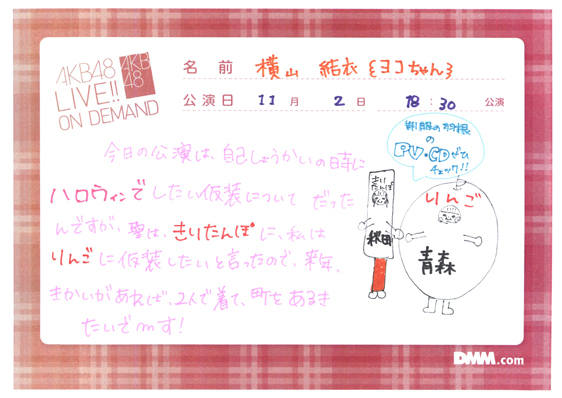 AKB48
LIVE!!
ON DEMAND
AKB
48
名 前 横山 結衣 {ヨコちゃん}
公演日 11月 2日 18:30 公演
今日の公演は、自己しょうかいの時に
ハロウィンでしたい仮装について だった
んですが、聖は、きりたんぽに、私は
りんごに仮装したいと言ったので、来年、
きかいがあれば、2人で着て、町をあるき
たいでmす!
制服の羽根
の
PV・CDぜひ
チェック!!
きりたんぽ
秋田
りんご
青森
DMM.com